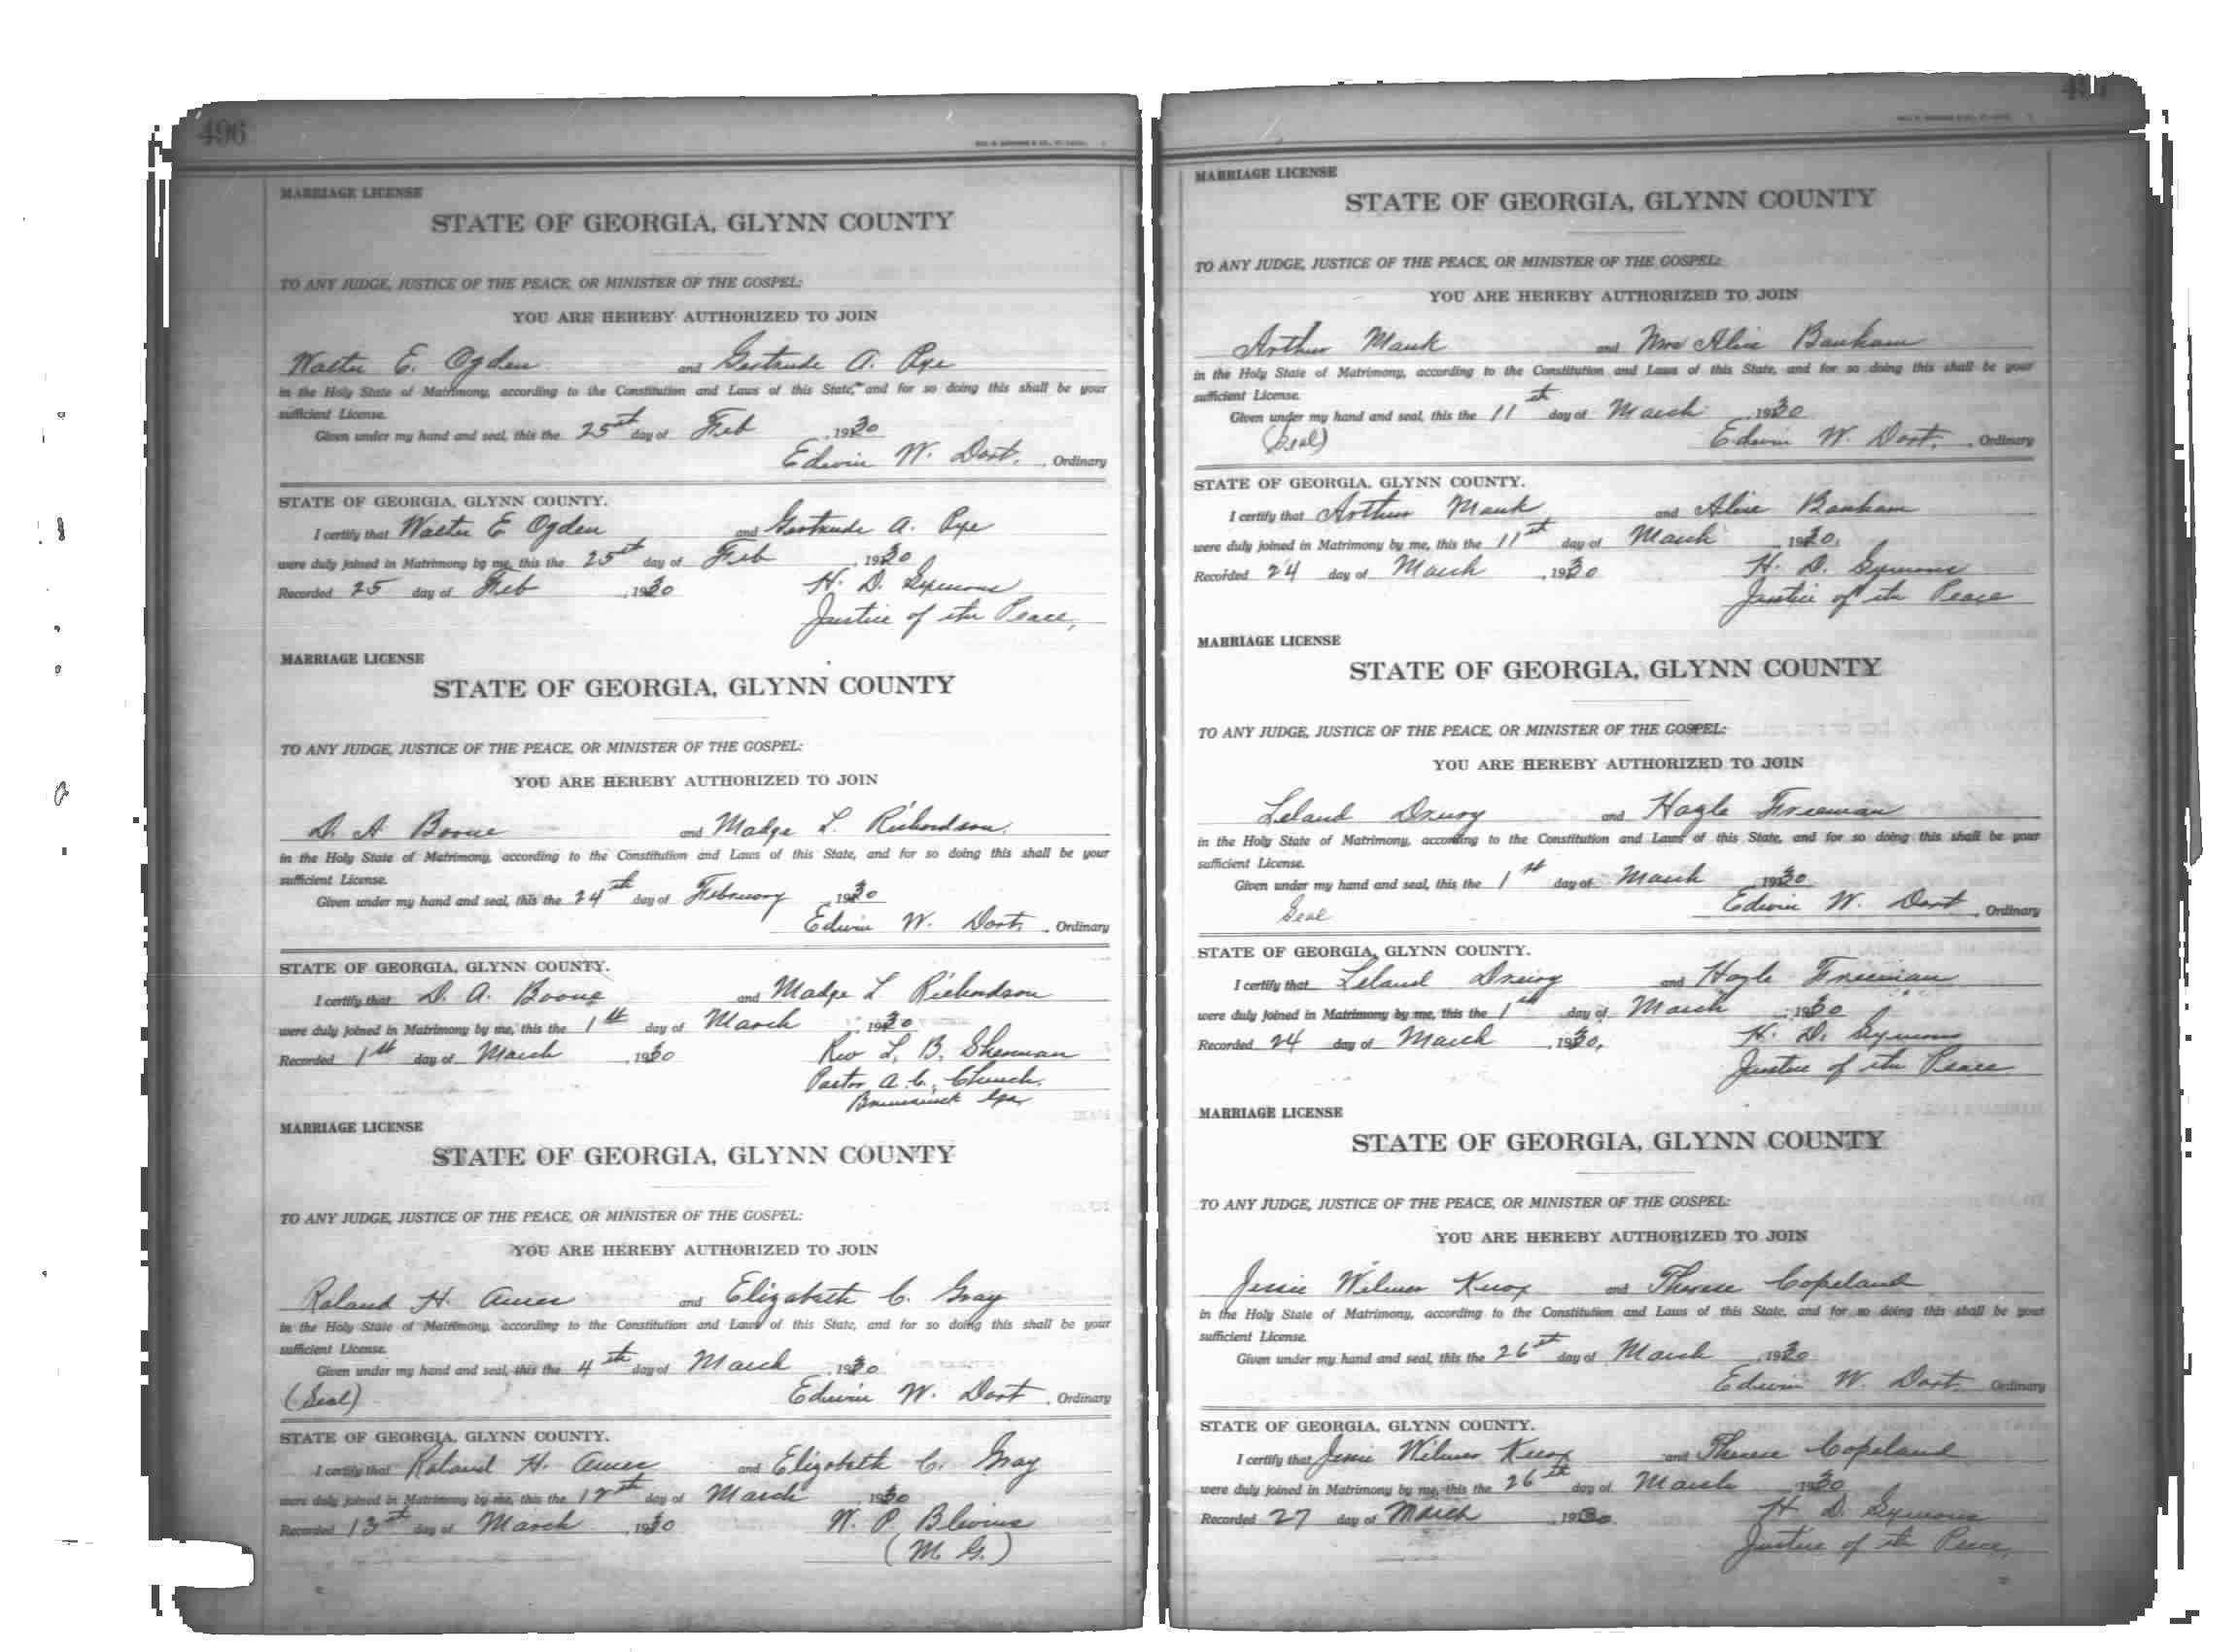 496
MARRIAGE LICENSE
STATE OF GEORGIA, GLYNN COUNTY
TO ANY JUDGE, JUSTICE OF THE PEACE, OR MINISTER OF THE GOSPEL:
YOU ARE HEREBY AUTHORIZED TO JOIN
Walter E. Ogden and Gertrude A. Pye
in the Holy State of Matrimony, according to the Constitution and Laws of this State, and for so doing this shall be your
sufficient License.
Given under my hand and seal, this the 25th day of Feb , 1930
Edwin W. Dart. , Ordinary
STATE OF GEORGIA, GLYNN COUNTY.
I certify that Walter E Ogden and Gertrude A. Pye
were duly joined in Matrimony by me, this the 25th day of Feb , 1930
Recorded 25 day of Feb , 1930 H. D. Symons
Justice of the Peace,
MARRIAGE LICENSE
STATE OF GEORGIA, GLYNN COUNTY
TO ANY JUDGE, JUSTICE OF THE PEACE, OR MINISTER OF THE GOSPEL:
YOU ARE HEREBY AUTHORIZED TO JOIN
D. A Boone and Madge L. Richardson.
in the Holy State of Matrimony, according to the Constitution and Laws of this State, and for so doing this shall be your
sufficient License.
Given under my hand and seal, this the 24th day of February , 1930
Edwin W. Dart, , Ordinary
STATE OF GEORGIA, GLYNN COUNTY.
I certify that D. A. Boone and Madge L Richardson
were duly joined in Matrimony by me, this the 1st day of March , 1930
Recorded 1st day of March , 1930 Rev L. B. Sherman
Pastor A. C. Church.
Brunswick Ga,
MARRIAGE LICENSE
STATE OF GEORGIA, GLYNN COUNTY
TO ANY JUDGE, JUSTICE OF THE PEACE, OR MINISTER OF THE GOSPEL:
YOU ARE HEREBY AUTHORIZED TO JOIN
Roland H. Ames and Elizabeth C. Gray
in the Holy State of Matrimony, according to the Constitution and Laws of this State, and for so doing this shall be your
sufficient License.
Given under my hand and seal, this the 4th day of March , 1930
(Seal) Edwin W. Dart , Ordinary
STATE OF GEORGIA, GLYNN COUNTY.
I certify that Roland H. Ames and Elizabeth C. Gray
were duly joined in Matrimony by me, this the 12th day of March , 1930
Recorded 13th day of March , 1930 W. P. Blevins
(M. G.)
MARRIAGE LICENSE
STATE OF GEORGIA, GLYNN COUNTY
TO ANY JUDGE, JUSTICE OF THE PEACE, OR MINISTER OF THE GOSPEL:
YOU ARE HEREBY AUTHORIZED TO JOIN
Arthur Mauk and Mrs Alice Banham
in the Holy State of Matrimony, according to the Constitution and Laws of this State, and for so doing this shall be your
sufficient License.
Given under my hand and seal, this the 11th day of March , 1930
(Seal) Edwin W. Dart. , Ordinary
STATE OF GEORGIA, GLYNN COUNTY.
I certify that Arthur Mauk and Alice Banham
were duly joined in Matrimony by me, this the 11th day of March , 1930.
Recorded 24 day of March , 1930 H. D. Symons
Justice of the Peace
MARRIAGE LICENSE
STATE OF GEORGIA, GLYNN COUNTY
TO ANY JUDGE, JUSTICE OF THE PEACE, OR MINISTER OF THE GOSPEL:
YOU ARE HEREBY AUTHORIZED TO JOIN
Leland Drury and Hagle Freeman
in the Holy State of Matrimony, according to the Constitution and Laws of this State, and for so doing this shall be your
sufficient License.
Given under my hand and seal, this the 1st day of March , 1930
Seal Edwin W. Dart , Ordinary
STATE OF GEORGIA, GLYNN COUNTY.
I certify that Leland Drury and Hagle Freeman
were duly joined in Matrimony by me, this the 1st day of March , 1930
Recorded 24 day of March , 1930, H. D. Symons
Justice of the Peace
MARRIAGE LICENSE
STATE OF GEORGIA, GLYNN COUNTY
TO ANY JUDGE, JUSTICE OF THE PEACE, OR MINISTER OF THE GOSPEL:
YOU ARE HEREBY AUTHORIZED TO JOIN
Jessie Wilmer Knox and Therese Copeland
in the Holy State of Matrimony, according to the Constitution and Laws of this State, and for so doing this shall be your
sufficient License.
Given under my hand and seal, this the 26th day of March , 1930
Edwin W. Dart. Ordinary
STATE OF GEORGIA, GLYNN COUNTY.
I certify that Jessie Wilmer Knox and Therese Copeland
were duly joined in Matrimony by me, this the 26th day of March 1930
Recorded 27 day of March , 1930 H D. Symons
Justice of the Peace,